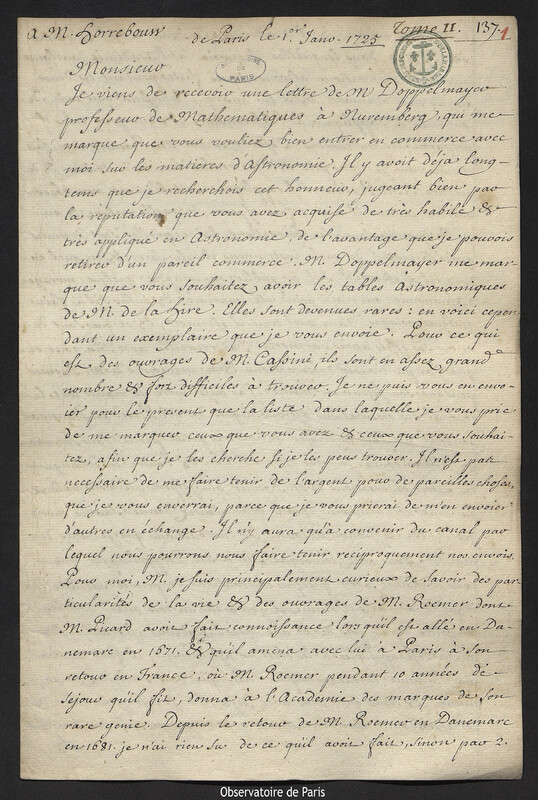 A M. Horrebouw de Paris le 1.er Janv. 1725 Tome II. 137. 1
PARIS
Monsieur
Je viens de recevoir une lettre de M Doppelmayer
professeur de Mathematiques à Nuremberg, qui me
marque que vous vouliez bien entrer en commerce avec
moi sur les matieres d'Astronomie. Il y avoit déja long-
tems que je recherchois cet honneur, jugeant bien par
la reputation que vous avez acquise de très habile &
très appliqué en Astronomie, de l'avantage que je pouvois
retirer d'un pareil commerce. M. Doppelmayer me mar
que que vous souhaitez avoir les tables Astronomiques
de M. de la hire. Elles sont devenues rares : en voici cepen
dant un exemplaire que je vous envoie. Pour ce qui
est des ouvrages de M. Cassini, ils sont en assez grand
nombre & fort difficiles à trouver. Je ne puis vous en envo-
ier pour le present que la liste dans laquelle je vous prie
de me marquer ceux que vous avez & ceux que vous souhai-
tez, afin que je les cherche si je les peus trouver. Il n'est pas
necessaire de me faire tenir de l'argent pour de pareilles choses,
que je vous enverrai, parce que je vous prierai de m'en envoier
d'autres en échange. Il n'y aura qu'à convenir du canal par
lequel nous pourrons nous faire tenir reciproquement nos envois.
Pour moi, M. je suis principalement curieux de savoir des par
ticularités de la vie & des ouvrages de M. Roemer dont
M. Picard avoit fait connoissance lors qu'il est allé en Da-
nemarc en 1671. & qu'il amena avec lui à Paris à son
retour en France, où M. Roemer pendant 10 années de
sejour qu'il fit, donna à l'Academie des marques de son
rare genie. Depuis le retour de M. Roemer en Danemarc
en 1681. je n'ai rien su de ce qu'il avoit fait, sinon par 2.
Observatoire de Paris